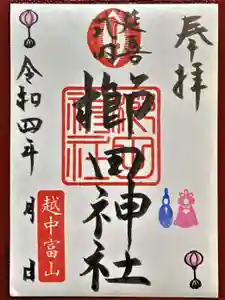 奉拝
延喜式内
櫛田神社
令和四年 月 日
越中富山